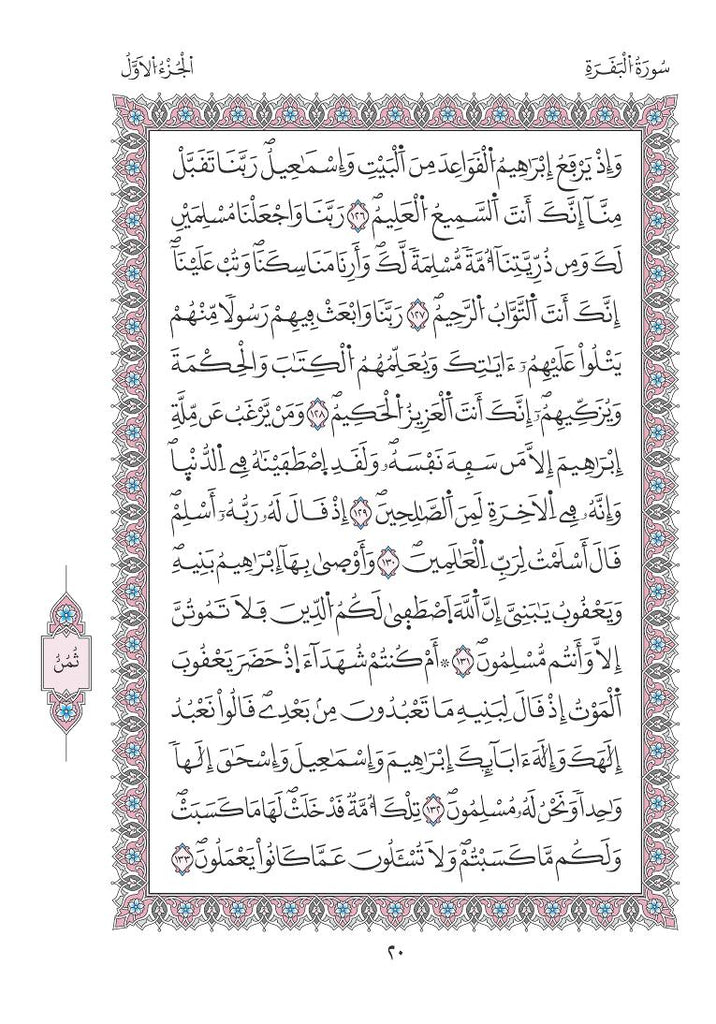 سُورَةُ الْبَقَرَةِ
اَلْجُزْءُ الْأَوَّلُ
وَإِذْ يَرْفَعُ إِبْرَٰهِيمُ اُ۬لْقَوَاعِدَ مِنَ اَ۬لْبَيْتِ وَإِسْمَٰعِيلُۖ رَبَّنَا تَقَبَّلْ
مِنَّآ إِنَّكَ أَنتَ اَ۬لسَّمِيعُ اُ۬لْعَلِيمُۖ ١٢٦ رَبَّنَا وَاجْعَلْنَا مُسْلِمَيْنِ
لَكَ وَمِن ذُرِّيَّتِنَآ أُمَّةٗ مُّسْلِمَةٗ لَّكَۖ وَأَرِنَا مَنَاسِكَنَاۖ وَتُبْ عَلَيْنَآۖ
إِنَّكَ أَنتَ اَ۬لتَّوَّابُ اُ۬لرَّحِيمُۖ ١٢٧ رَبَّنَا وَابْعَثْ فِيهِمْ رَسُولٗا مِّنْهُمْ
يَتْلُواْ عَلَيْهِمُۥٓ ءَايَٰتِكَ وَيُعَلِّمُهُمُ اُ۬لْكِتَٰبَ وَالْحِكْمَةَ
وَيُزَكِّيهِمُۥٓۖ إِنَّكَ أَنتَ اَ۬لْعَزِيزُ اُ۬لْحَكِيمُۖ ١٢٨ وَمَنْ يَّرْغَبُ عَن مِّلَّةِ
إِبْرَٰهِيمَ إِلَّا مَن سَفِهَ نَفْسَهُۥۖ وَلَقَدِ اِ۪صْطَفَيْنَٰهُ فِے اِ۬لدُّنْي۪اۖ
وَإِنَّهُۥ فِے اِ۬لَاخِرَةِ لَمِنَ اَ۬لصَّٰلِحِينَۖ ١٢٩ إِذْ قَالَ لَهُۥ رَبُّهُۥٓ أَسْلِمْۖ
قَالَ أَسْلَمْتُ لِرَبِّ اِ۬لْعَٰلَمِينَۖ ١٣٠ وَأَوْص۪ىٰ بِهَآ إِبْرَٰهِيمُ بَنِيهِۖ
وَيَعْقُوبُ يَٰبَنِيَّ إِنَّ اَ۬للَّهَ اَ۪صْطَف۪ىٰ لَكُمُ اُ۬لدِّينَ فَلَا تَمُوتُنَّ
إِلَّا وَأَنتُم مُّسْلِمُونَۖ ١٣١ ۞ أَمْ كُنتُمْ شُهَدَآءَ اِ۪ذْ حَضَرَ يَعْقُوبَ
اَ۬لْمَوْتُ إِذْ قَالَ لِبَنِيهِ مَا تَعْبُدُونَ مِنۢ بَعْدِےۖ قَالُواْ نَعْبُدُ
إِلَٰهَكَ وَإِلَٰهَ ءَابَآئِكَ إِبْرَٰهِيمَ وَإِسْمَٰعِيلَ وَإِسْحَٰقَ إِلَٰهاٗ
وَٰحِداٗ وَنَحْنُ لَهُۥ مُسْلِمُونَۖ ١٣٢ تِلْكَ أُمَّةٞ قَدْ خَلَتْۖ لَهَا مَا كَسَبَتْۖ
وَلَكُم مَّا كَسَبْتُمْۖ وَلَا تُسْـَٔلُونَ عَمَّا كَانُواْ يَعْمَلُونَۖ ١٣٣
ثُمُنُ
٢٠